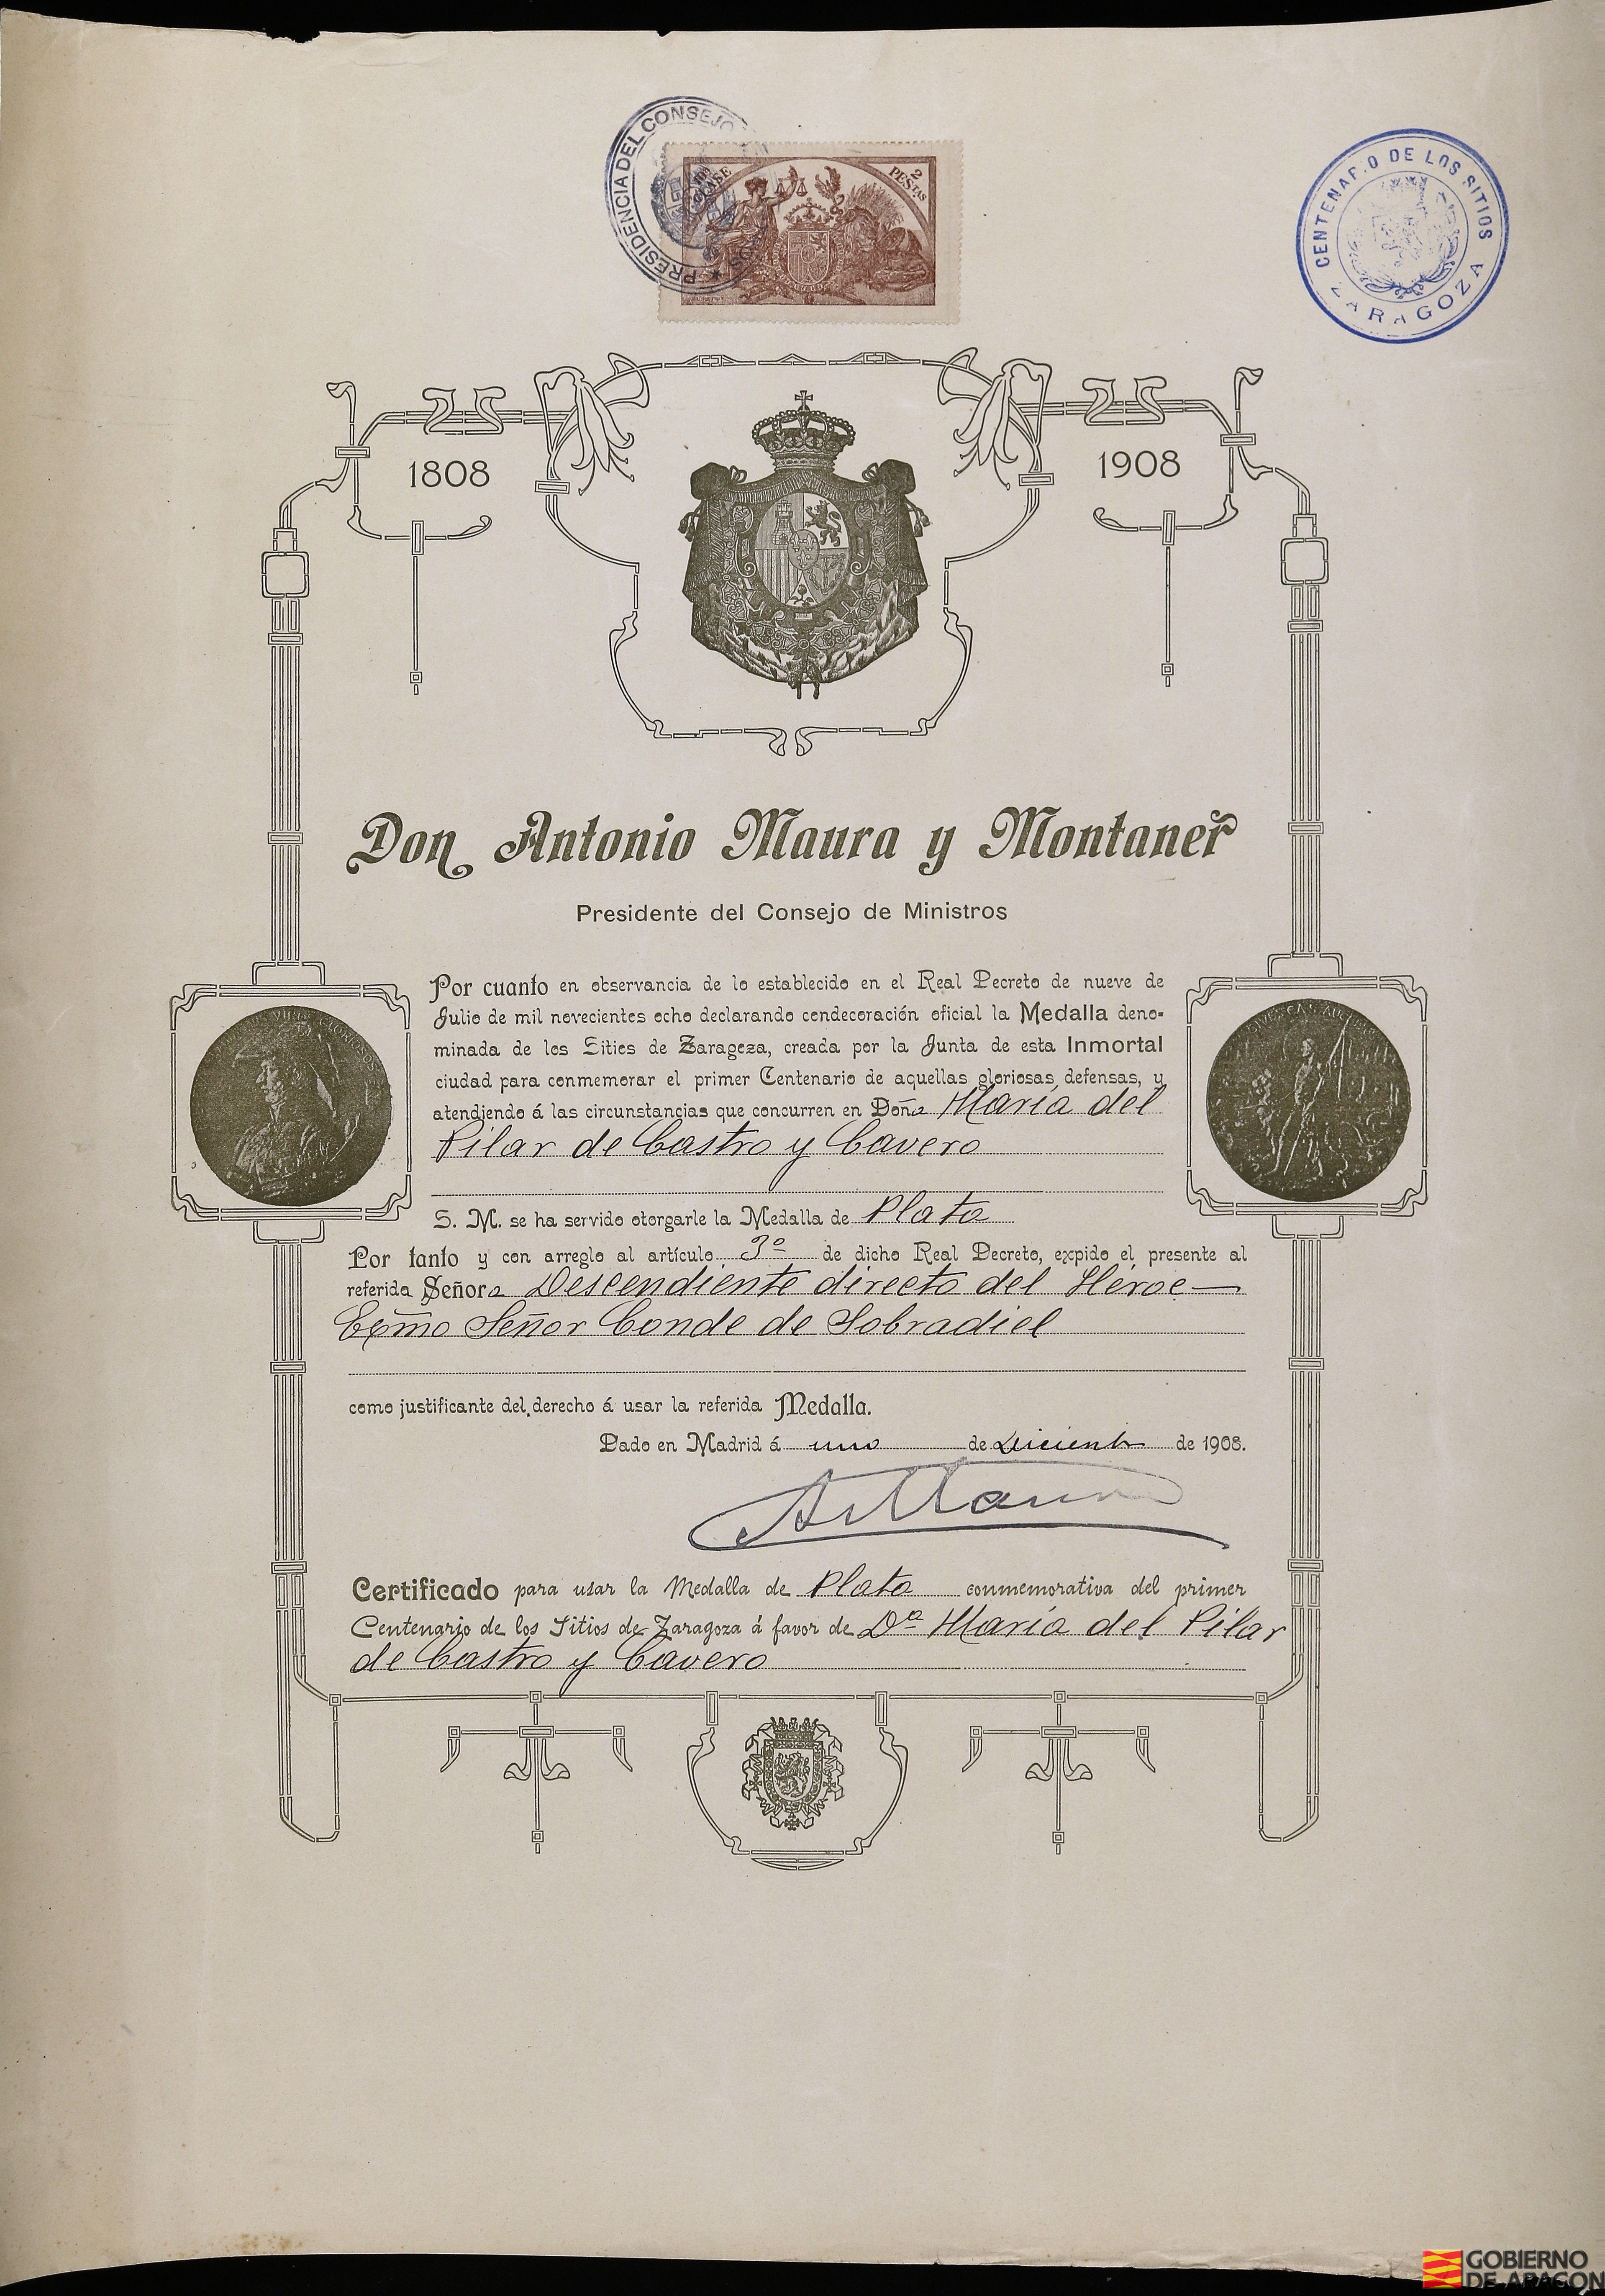 PRESIDENCIA DEL CONSEJO
2 PESETAS
CENTENARIO DE LOS SITIOS
ZARAGOZA
1808
1908
Don Antonio Maura y Montaner
Presidente del Consejo de Ministros
Por cuanto en observancia de lo establecido en el Real Decreto de nueve de
Julio de mil novecientos ocho declarando condecoración oficial la Medalla deno-
minada de los Sitios de Zaragoza, creada por la Junta de esta Inmortal
ciudad para conmemorar el primer Centenario de aquellas gloriosas defensas, y
atendiendo á las circunstancias que concurren en Doña María del
Pilar de Castro y Cavero
S. M. se ha servido otorgarle la Medalla de Plata
Por tanto y con arreglo al artículo 3º de dicho Real Decreto, expido el presente al
referida Señora Descendiente directo del Héroe—
Exmo Señor Conde de Sobradiel
como justificante del derecho á usar la referida Medalla.
Dado en Madrid á uno de Diciembre de 1908.
A Maura
Certificado para usar la Medalla de Plata conmemorativa del primer
Centenario de los Sitios de Zaragoza á favor de Dª María del Pilar
de Castro y Cavero
GOBIERNO
DE ARAGON